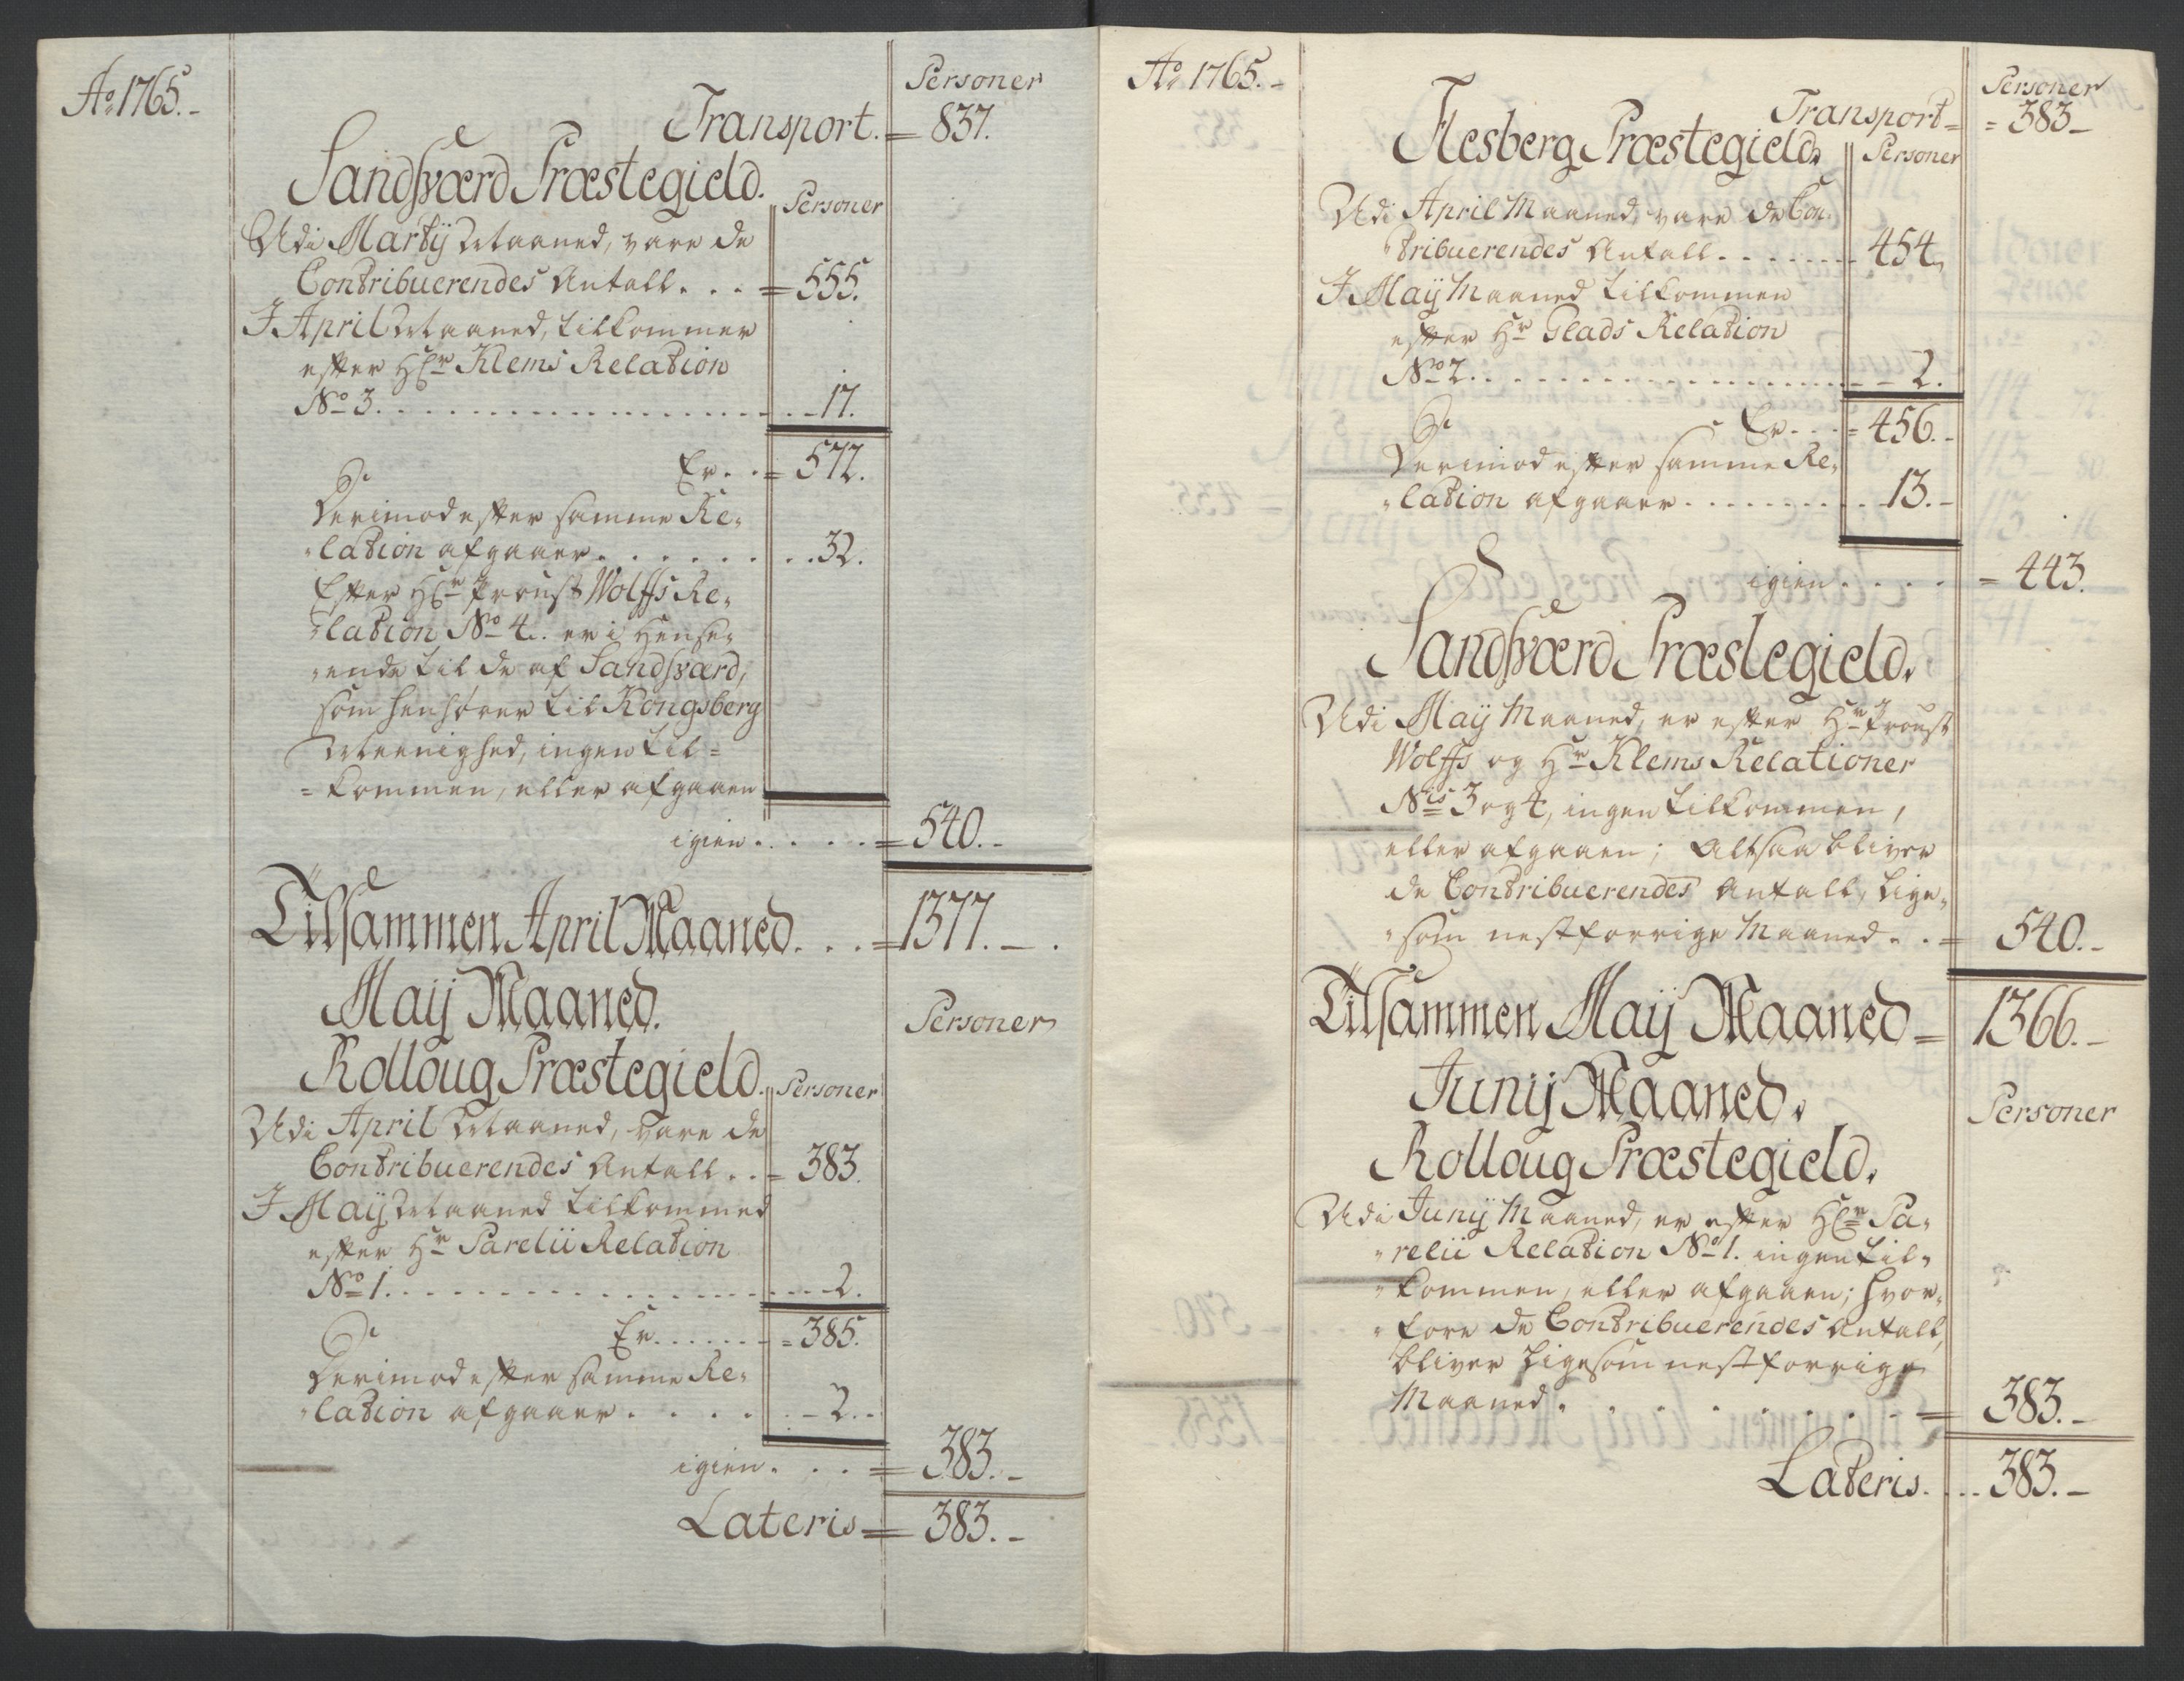 Ao 1765.-
Personer
Transport. = 837.
Sandsværd Præstegield.
Personer
Udi Martij Maaned, vare de
Contribuerendes Antall. . . = 555.
I April Maaned, tilkommer
efter Hr Klems Relation
No 3. . . . . . . . . . . . 17.
Er. . = 572.
Derimod efter samme Re-
lation afgaaer. . . . . . . 32.
Efter Hr Proust Wolffs Re-
lation No 4. er i Hense-
ende til de af Sandsværd,
som henhører til Kongsberg
Meenighed, ingen til =
= kommen, eller afgaaen
igien. . . . . = 540.-
Tilsammen April Maaned. . . = 1377.-.
Maij Maaned.
Personer
Rolloug Præstegield.
Personer
Udi April Maaned, vare de
Contribuerendes Antall. . = 383.
I Maij Maaned tilkommed
efter Hr Sarelii Relation
No 1. . . . . . . . . . . 2.
Er. . . . . . = 385.
Derimod efter samme Re-
lation afgaaer. . . . . . - 2.-
igien. . . . = 383.-
Lateris = 383.-
Ao 1765.-
Personer
Transport = = 383-
Flesberg Præstegield.
Personer
Udi April Maaned, vare de Con-
tribuerendes Antall. . . . . . . 454.
I Maij Maaned tilkommen
efter Hr Glads Relation
No 2. . . . . . . . . . . . - 2.
Er. . . = 456.-
Derimod efter samme Re-
lation afgaaer. . . . . . . . . 13.-
igien. . . . . = 443.
Sandsværd Præstegield.
Udi Maij Maaned, er efter Hr Proust
Wolffs og Hr Klems Relationer
Nis 3 og 4, ingen tilkommen,
eller afgaaen; Altsaa bliver
de Contribuerendes Antall, lige-
som nestforrige Maaned. . = 540.-
Tilsammen Maij Maaned = 1366.-
Junij Maaned.
Personer
Rolloug Præstegield.
Udi Junij Maaned, er efter Hr Sa-
relii Relation No 1. ingen til-
kommen, eller afgaaen; hvor-
fore de Contribuerendes Antall,
bliver ligesom nestforrige
Maaned. . . . . . . . . = 383.-
Lateris. . . . 383.-